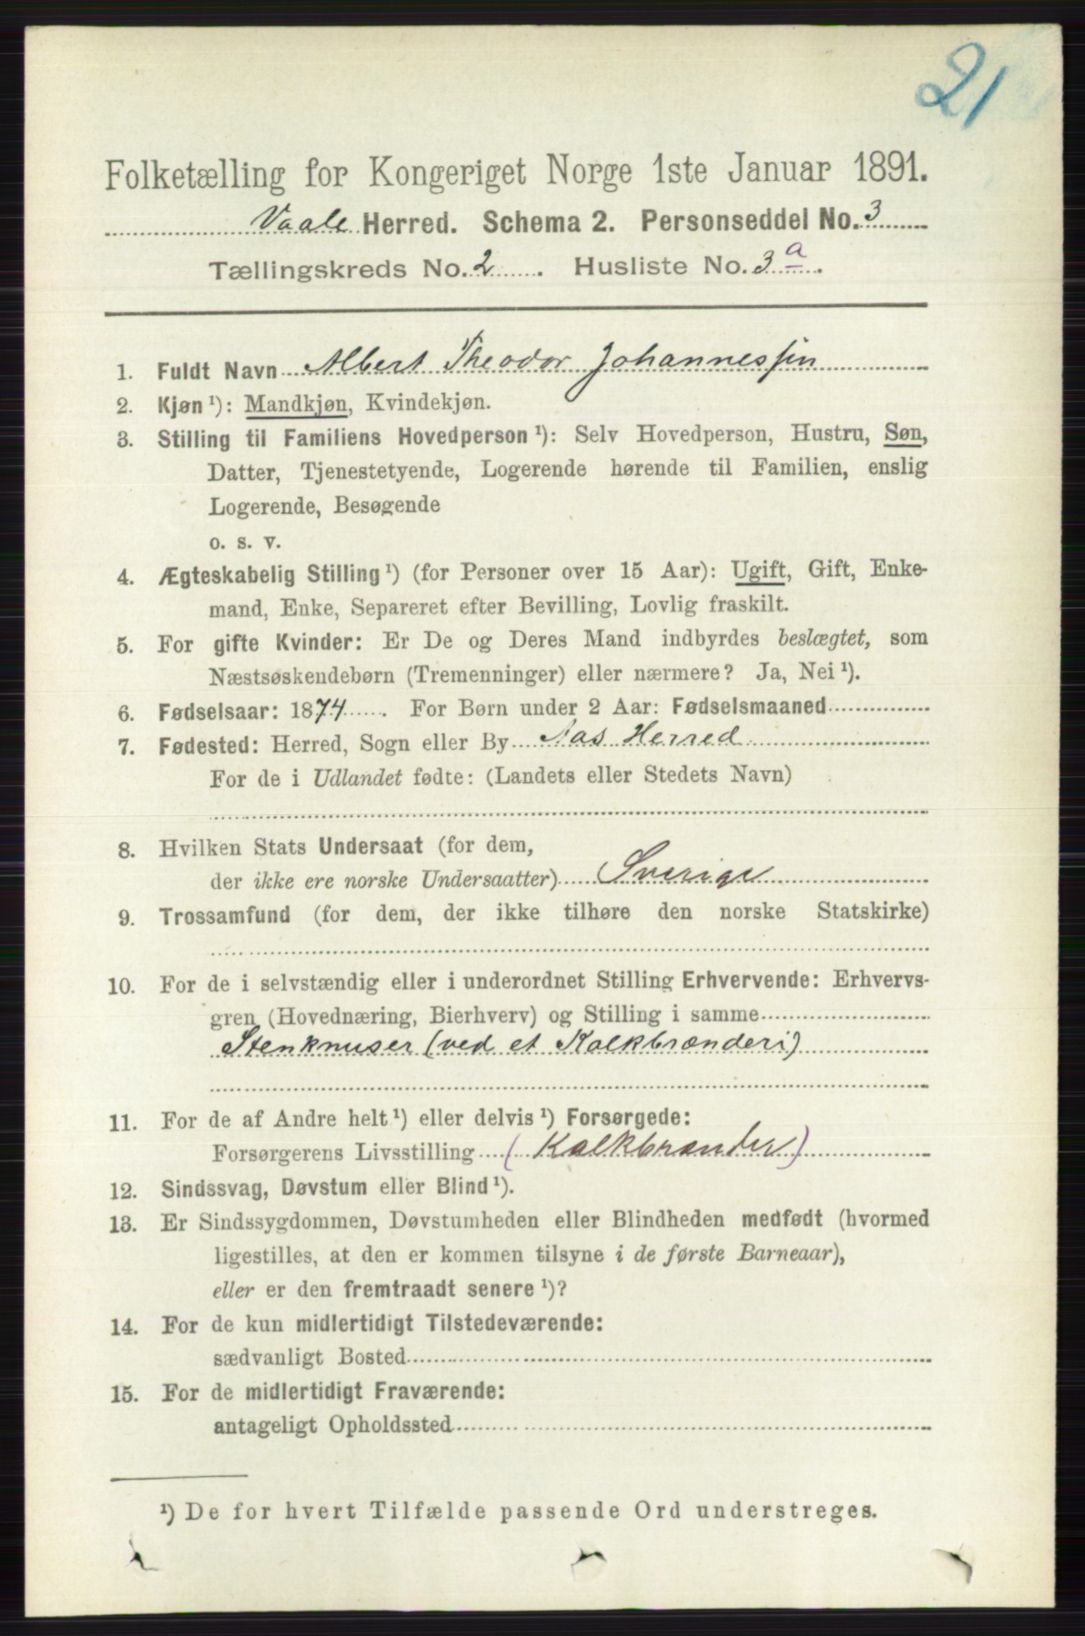 21
Folketælling for Kongeriget Norge 1ste Januar 1891.
Vaale Herred. Schema 2. Personseddel No. 3
Tællingskreds No. 2. Husliste No. 3 a.
1. Fuldt Navn Albert Theodor Johannessen
2. Kjøn ¹): Mandkjøn, Kvindekjøn.
3. Stilling til Familiens Hovedperson ¹): Selv Hovedperson, Hustru, Søn,
Datter, Tjenestetyende, Logerende hørende til Familien, enslig
Logerende, Besøgende
o. s. v.
4. Ægteskabelig Stilling ¹) (for Personer over 15 Aar): Ugift, Gift, Enke-
mand, Enke, Separeret efter Bevilling, Lovlig fraskilt.
5. For gifte Kvinder: Er De og Deres Mand indbyrdes beslægtet, som
Næstsøskendebørn (Tremenninger) eller nærmere? Ja, Nei ¹).
6. Fødselsaar: 1874. For Børn under 2 Aar: Fødselsmaaned
7. Fødested: Herred, Sogn eller By Aas Herred
For de i Udlandet fødte: (Landets eller Stedets Navn)
8. Hvilken Stats Undersaat (for dem,
der ikke ere norske Undersaatter) Sverige
9. Trossamfund (for dem, der ikke tilhøre den norske Statskirke)
10. For de i selvstændig eller i underordnet Stilling Erhvervende: Erhvervs-
gren (Hovednæring, Bierhverv) og Stilling i samme
Stenknuser (ved et Kalkbrænderi)
11. For de af Andre helt ¹) eller delvis ¹) Forsørgede:
Forsørgerens Livsstilling (Kalkbrænder)
12. Sindssvag, Døvstum eller Blind ¹).
13. Er Sindssygdommen, Døvstumheden eller Blindheden medfødt (hvormed
ligestilles, at den er kommen tilsyne i de første Barneaar),
eller er den fremtraadt senere ¹)?
14. For de kun midlertidigt Tilstedeværende:
sædvanligt Bosted
15. For de midlertidigt Fraværende:
antageligt Opholdssted
¹) De for hvert Tilfælde passende Ord understreges.